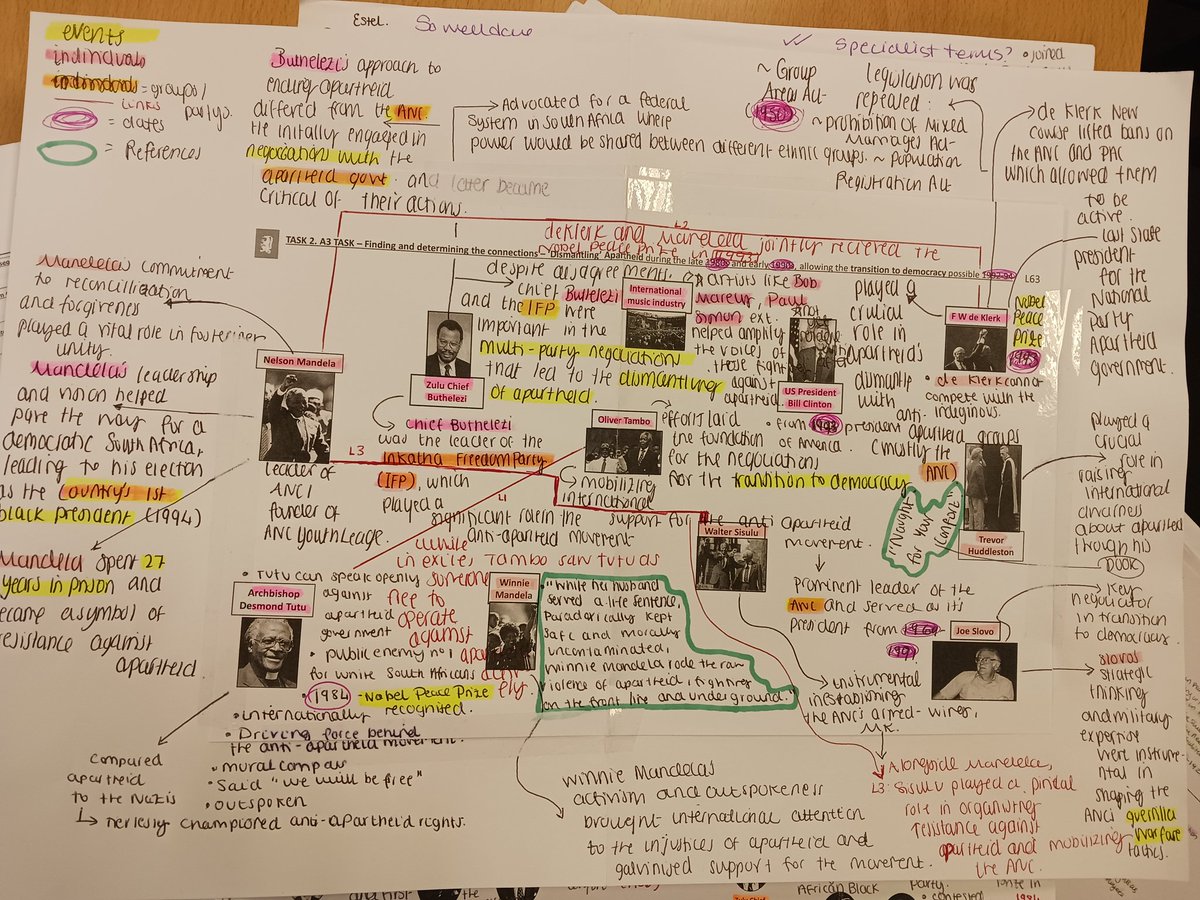 Estel.
So welldone
✓✓ Specialist terms?
• joined
events
individuals
individuals = groups/
partys.
links
= dates
= References
Buthelezi's approach to
ending apartheid
differed from the ANC.
He initally engaged in
negotiations with the
apartheid govt. and later became
critical of their actions.
Advocated for a federal
system in south Africa where
power would be shared between different ethnic groups.
~ Group
Areas Act-
1950
~ prohibition of Mixed
Marriages Act-
~ Population
Registration Act
legislation was
repealed:
de Klerk New
course lifted bans on
the ANC and PAC
which allowed them
to be
active.
last state
president
for the
National
party
Apartheid
government.
L2
deKlerk and Mandela jointly recieved the
Nobel Peace Prize in 1993
TASK 2. A3 TASK – Finding and determining the connections – 'Dismantling' Apartheid during the late and early , allowing the transition to democracy possible
L63
Mandela's commitment
to reconcilliation
and forgiveness
played a vital role in fostering
unity.
Mandela's leadership
and vision helped
pave the way for a
democratic South Africa,
leading to his election
as the country's 1st
black president (1994)
Mandela spent 27
years in prison and
became a symbol of
resistance against
apartheid
Nelson Mandela
L3
leader of
ANC/
funder of
ANC Youth Leage.
Zulu Chief
Buthelezi
despite disagreements,
chief Buthelezi
and the IFP were
important in the
multi-party negotiations
that led to the dismantling
of apartheid
chief Buthelezi
was the leader of the
Inkatha Freedom Party
(IFP), which
played a
significant role in the
anti-apartheid movement
International
music industry
artists like Bob
Marley, Paul
Simon ext.
helped amplify
the voices of
those fight
against
apartheid.
US President
Bill Clinton
• from 1993 president
of America.
Oliver Tambo
efforts laid
the foundation
for the negotiations
for the transition to democracy
mobilizing
international
support for the anti apartheid
movement.
played a
crucial
role in
apartheid's
dismantle
with
anti.
apartheid groups
(mostly the
ANC)
F W de Klerk
Nobel
Peace
Prize
1993
• de Klerk canno
compete with the
indiginous.
Trevor
Huddleston
"Nought
for your
Comfort"
played a
crucial
role in
raising
international
awarness
about apartheid
through his
book
L1
While
in exile, Tambo saw Tutu as
someone
free to
operate
against
Archbishop
Desmond Tutu
• Tutu can speak openly
against
apartheid
government
• public enemy no 1
for white South Africans
• 1984 - Nobel Peace Prize
• internationally recognised.
• Driving force behind
the anti-apartheid movement.
• moral compass
• Said "we will be free"
• outspoken
Compared
apartheid
to the Nazis
↳ championed anti-apartheid rights.
Winnie
Mandela
"While her husband
served a life sentence,
paradoxically kept
safe and morally
uncontaminated,
Winnie Mandela rode the raw
violence of apartheid, fighting
on the front line and underground."
Winnie Mandelas
activism and outspokeness
brought international attention
to the injustices of apartheid and
galvinised support for the movement.
Walter Sisulu
prominent leader of the
ANC and served as its
president from
1991
instrumental
in establishing
the ANC's armed-wing,
MK.
L3:
Alongside Mandela,
Sisulu played a pivital
role in organising
resistance against
apartheid and mobilizing
the ANC.
Joe Slovo
Key
negotiator
in transition
to democracy.
slovos
strategic
thinking
and military
expertise
were instrume-
ntal in
shaping the
ANCs guerrilla
warfare
tactics.
African Black
Party.
• contested